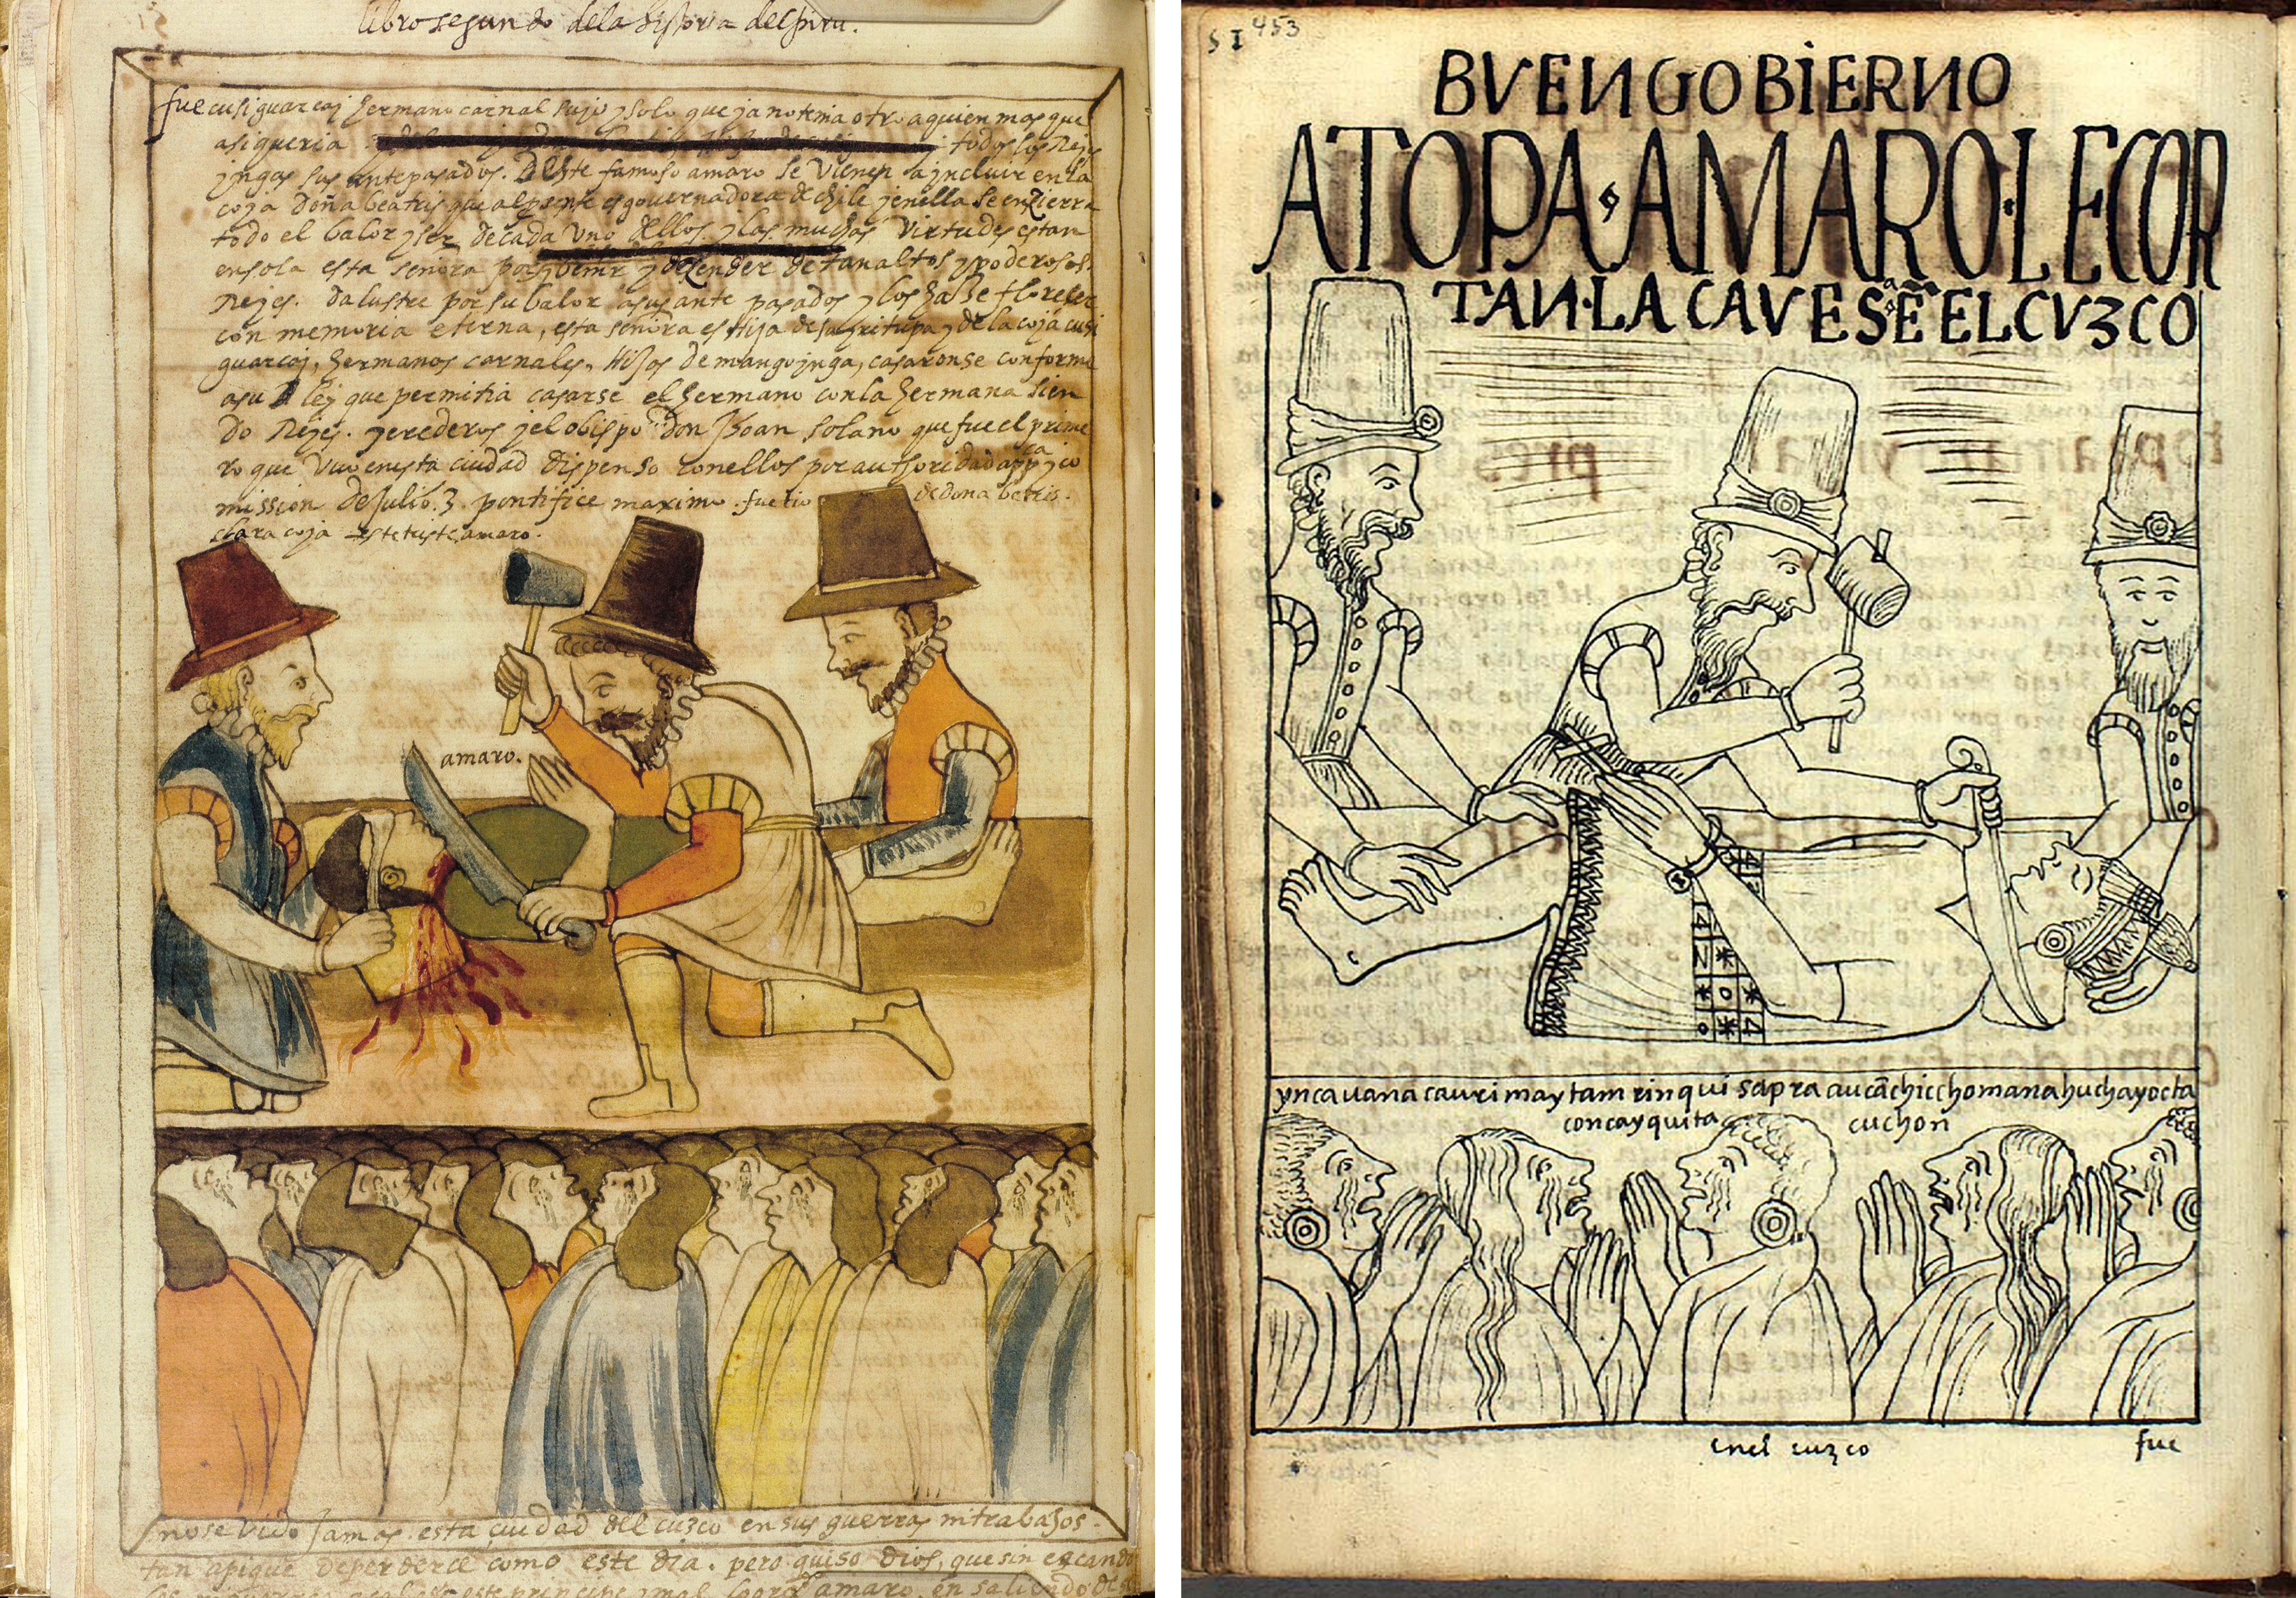 libro segundo dela historia del piru.
fue cusiguarcaj hermano carnal sujo y solo que ja no tenia otro a quien mas que
asi queria todos los Rejes
jngas sus antepasados. Deste famoso amaro se vienen a jncluir en la
coja doña beatris que al presente es governadora de chile j en ella se enzierra
todo el balor y ser de cada uno dellos y las muchas virtudes estan
en sola esta señora por y desender de tan altos y poderosos.
Rejes. da lustre por su balor a sus ante pasados y los haze florecer
con memoria eterna, esta señora es Hija de sajritupa y de la coja cusi
guarcaj, hermanos carnales, Hijos de mangojnga, casaronse conforme
a su lej que permitia casarse el hermano con la hermana sien
do Rejes. y erederos j el obispo don Jhoan solano que fue el prime
ro que vuo en esta ciudad dispenso con ellos por authoridad appca y co
mission de Julio. 3 pontifice maximo. fue tio de dona beatris.
clara coja este triste amaro.
amaro.
no se vido jamas esta ciudad del cuzco en sus guerras ni trabajos
tan apique deperderce como este dia. pero quiso Dios, que sin escanda
este principe amaro. en saliendo
51 453
BVEN GOBIERNO
ATOPA AMARO LE COR
TAN LA CAVESA Ẽ EL CVZCO
ynca uana cauri maytam rinqui sapra aucãchiccho mana huchayocta
concayquita cuchon
en el cuzco
fue